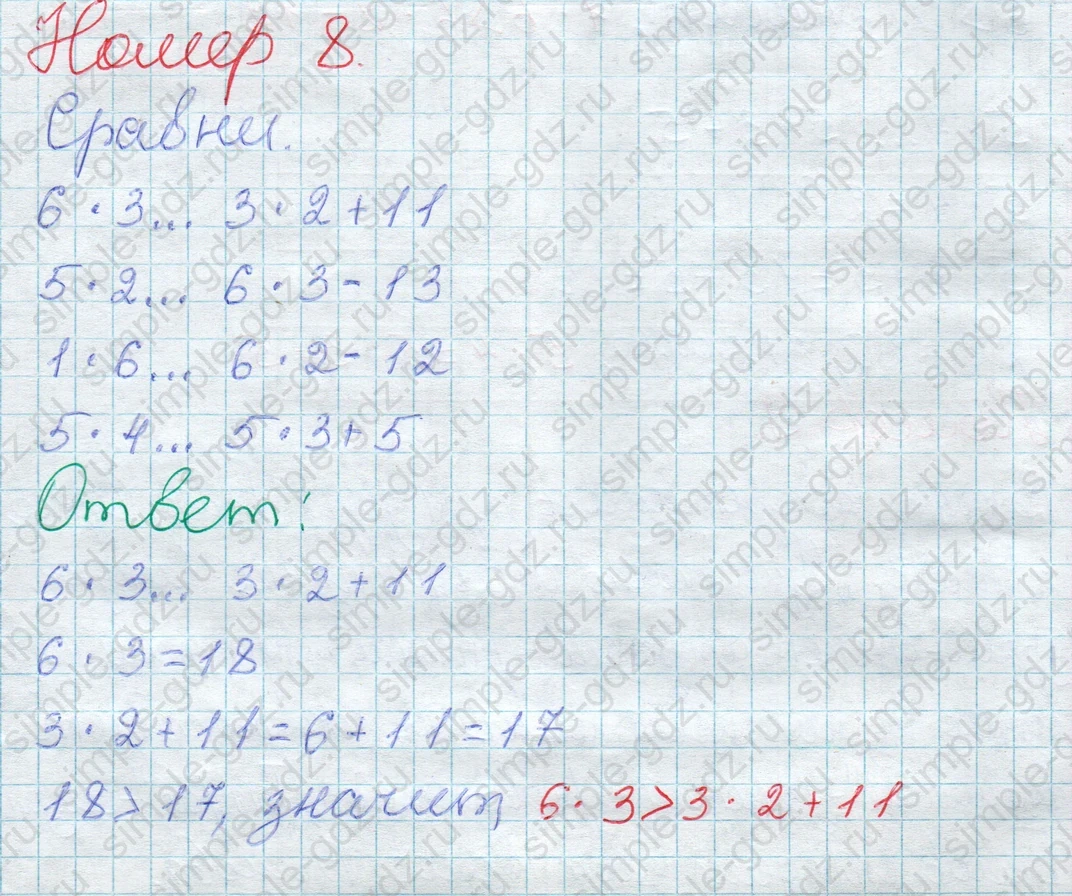 Номер 8.
Сравни.
6 · 3... 3 · 2 + 11
5 · 2... 6 · 3 - 13
1 · 6... 6 · 2 - 12
5 · 4... 5 · 3 + 5
Ответ:
6 · 3... 3 · 2 + 11
6 · 3 = 18
3 · 2 + 11 = 6 + 11 = 17
18 > 17, значит, 6 · 3 > 3 · 2 + 11
simple-gdz.ru